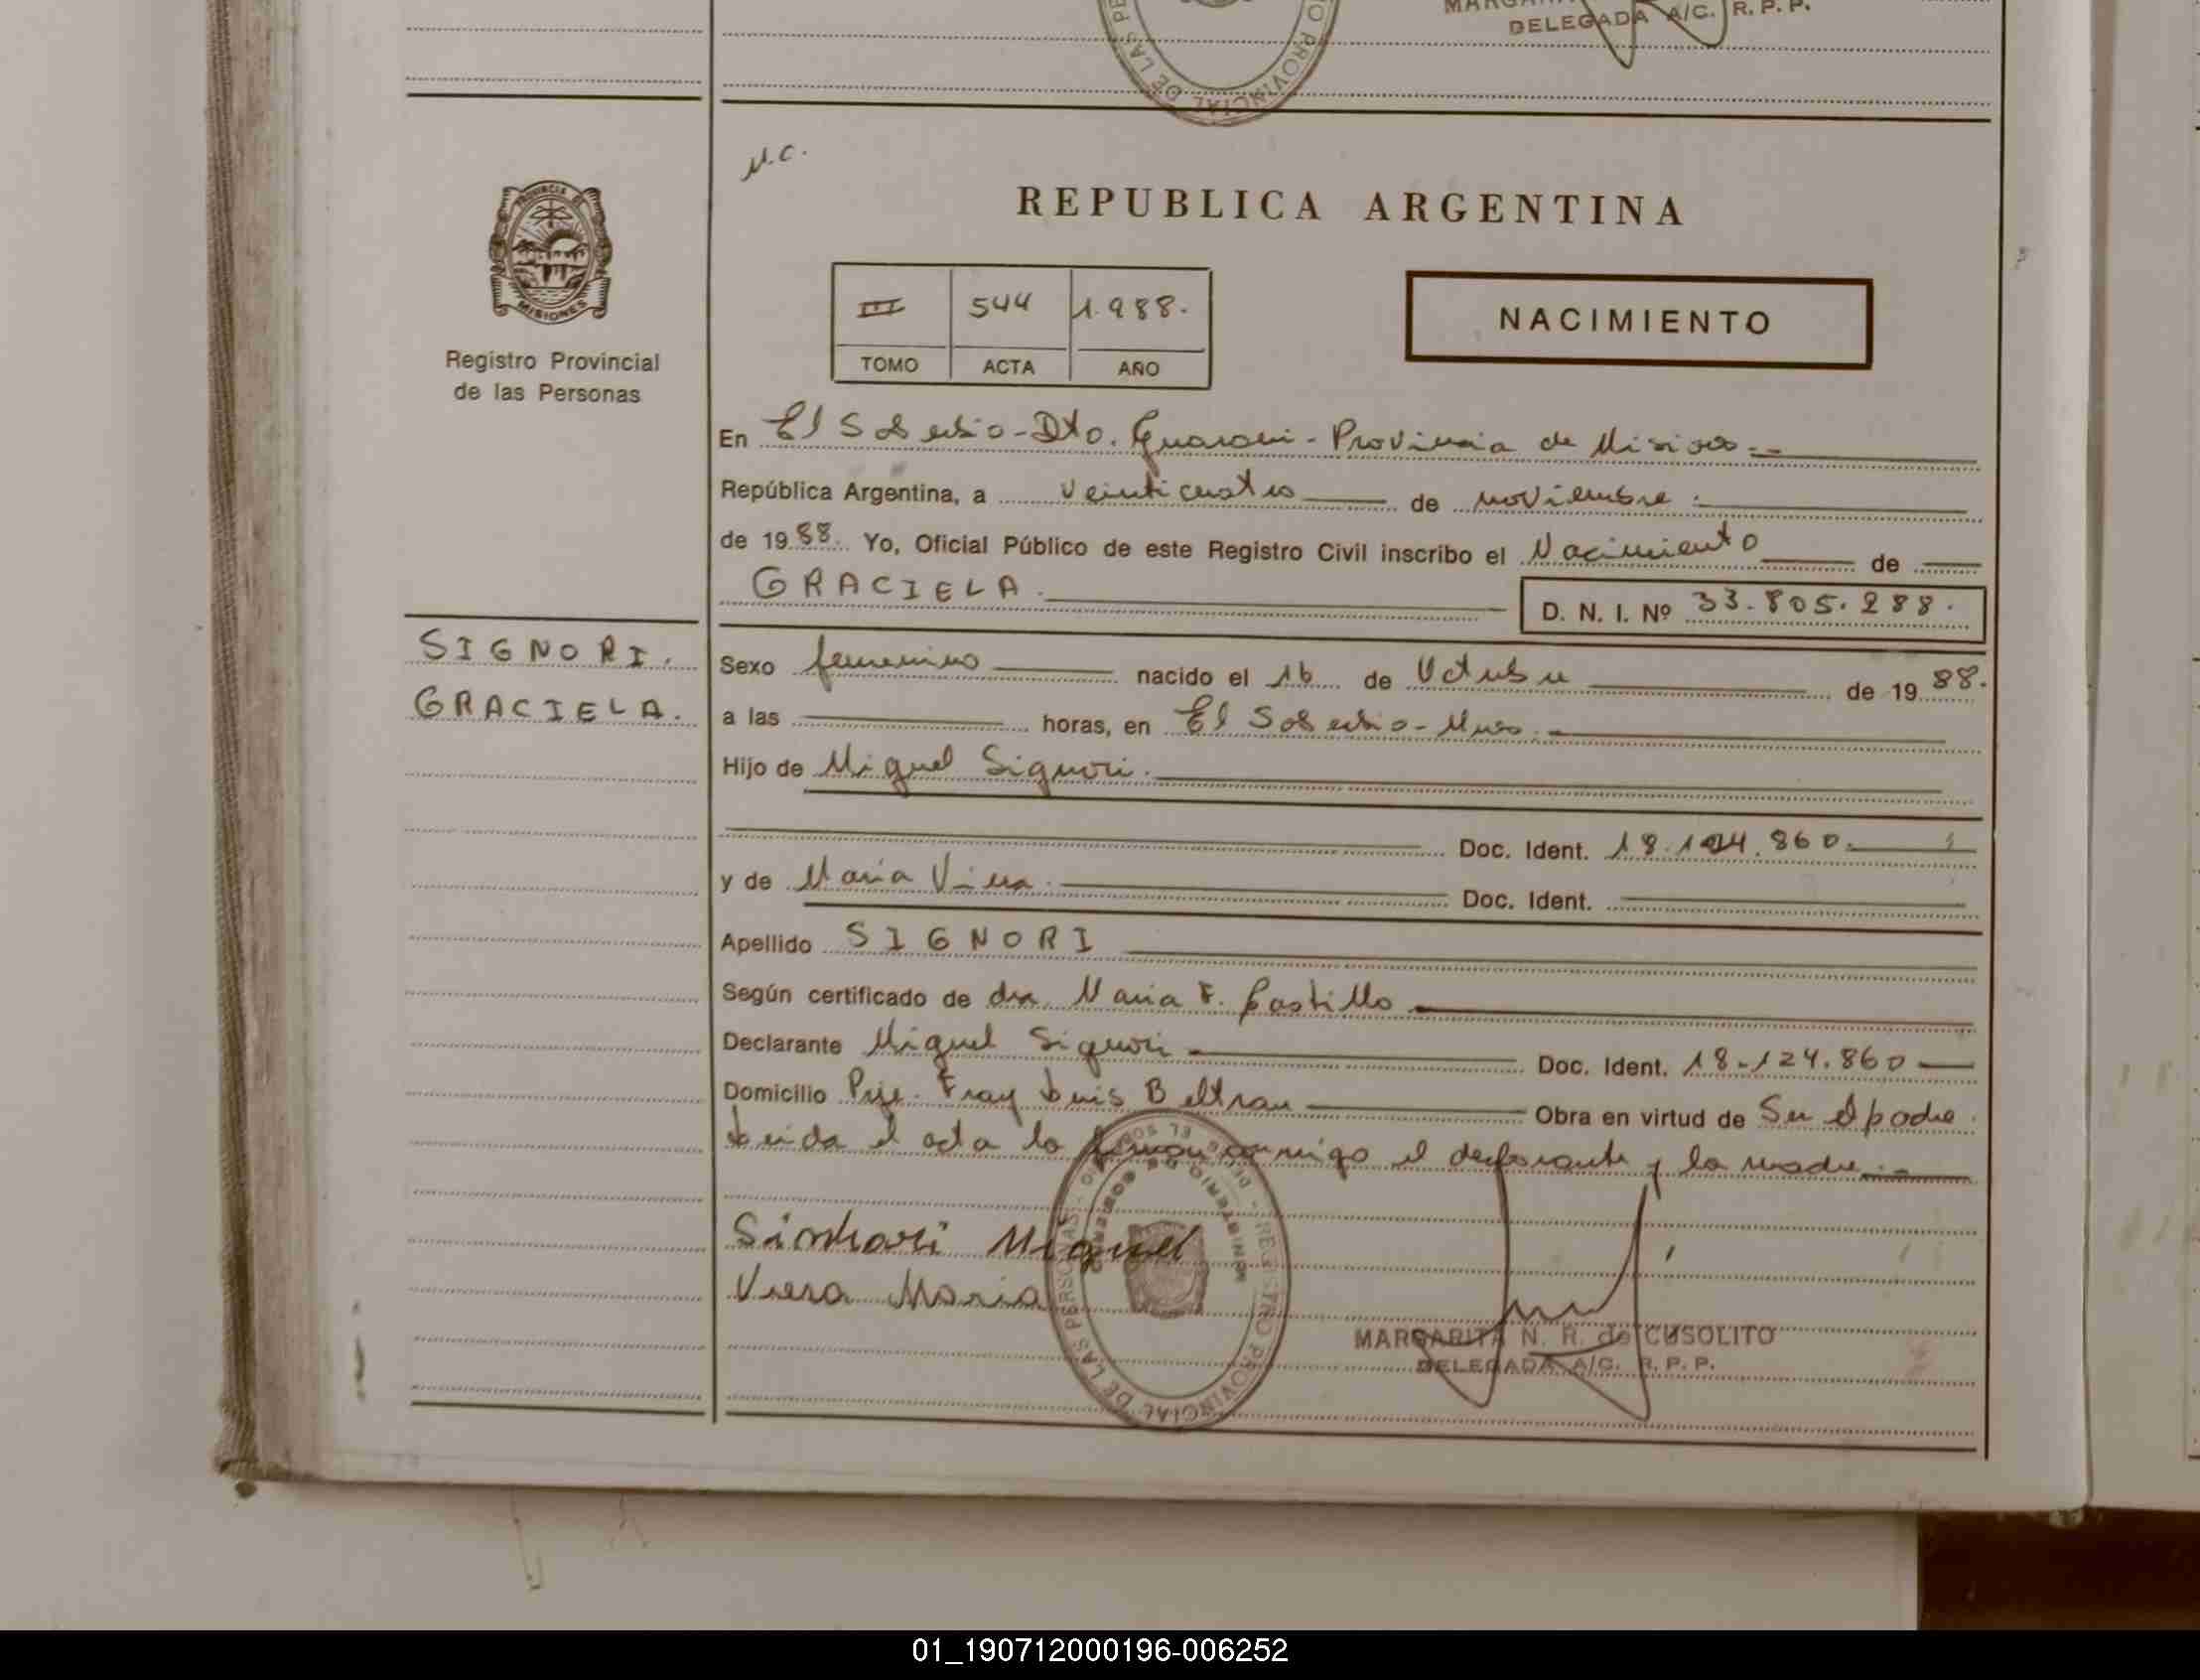 MARGARI
DELEGADA A/C. R. P. P.
DE LAS PE
IO PROVINCIAL
N.C.
REPUBLICA ARGENTINA
PROVINCIA DE
MISIONES
III 544 1.988.
TOMO ACTA AÑO
NACIMIENTO
Registro Provincial
de las Personas
En El Soberbio - Dto. Guarani - Provincia de Misiones.-
República Argentina, a veinticuatro de noviembre.
de 1988. Yo, Oficial Público de este Registro Civil inscribo el Nacimiento de
GRACIELA.
D. N. I. Nº 33.805.288.
SIGNORI.
GRACIELA.
Sexo femenino nacido el 16 de Octubre de 1988.
a las horas, en El Soberbio - Mnes.
Hijo de Miguel Signori.
Doc. Ident. 18.124.860.
y de Maria Viera. Doc. Ident.
Apellido SIGNORI
Según certificado de dra. Maria F. Castillo
Declarante Miguel Signori Doc. Ident. 18-124.860
Domicilio Pje. Fray Luis Beltran Obra en virtud de Ser el padre.
Leida el acta la firman conmigo el declarante y la madre.-
Sinhori Miguel
Viera Maria
REGISTRO PROVINCIAL DE LAS PERSONAS
MINISTERIO DE GOBIERNO
MARGARITA N. R. de CUSOLITO
DELEGADA A/C. R. P. P.
01_190712000196-006252